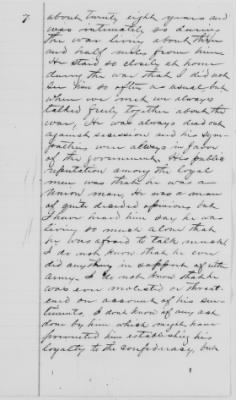 7.
about twenty eight years and
was intimately so during
the war living about three
and half miles from him
He staid so closely at home
during the war that I did not
see him so often as usual but
when we met we always
talked freely together about the
war. He was always dead out
against secession and his sym-
pathies were always in favor
of the government. His public
reputation among the loyal
men was that he was a
Union man. He was a man
of quite decided opinions but
I have heard him say he was
living so much alone that
he was afraid to talk much
I do not know that he ever
did anything in support of either
army. I do not know that he
was ever molested or threat-
ened on account of his sen-
timents. I dont know of any act
done by him which might have
prevented him establishing his
loyalty to the confederacy, but